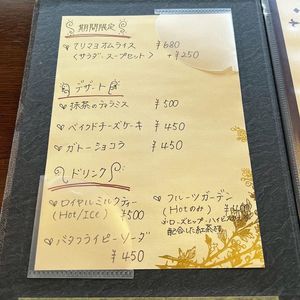 期間限定
テリマヨオムライス ¥680
〈サラダ・スープセット〉 +¥250
デザート
抹茶のティラミス ¥500
ベイクドチーズケーキ ¥450
ガトーショコラ ¥450
ドリンク
ロイヤルミルクティー
(Hot/Ice) ¥500
バタフライピーソーダ
¥450
フルーツガーデン
(Hotのみ)
・ローズヒップ・ハイビス
配合した紅茶